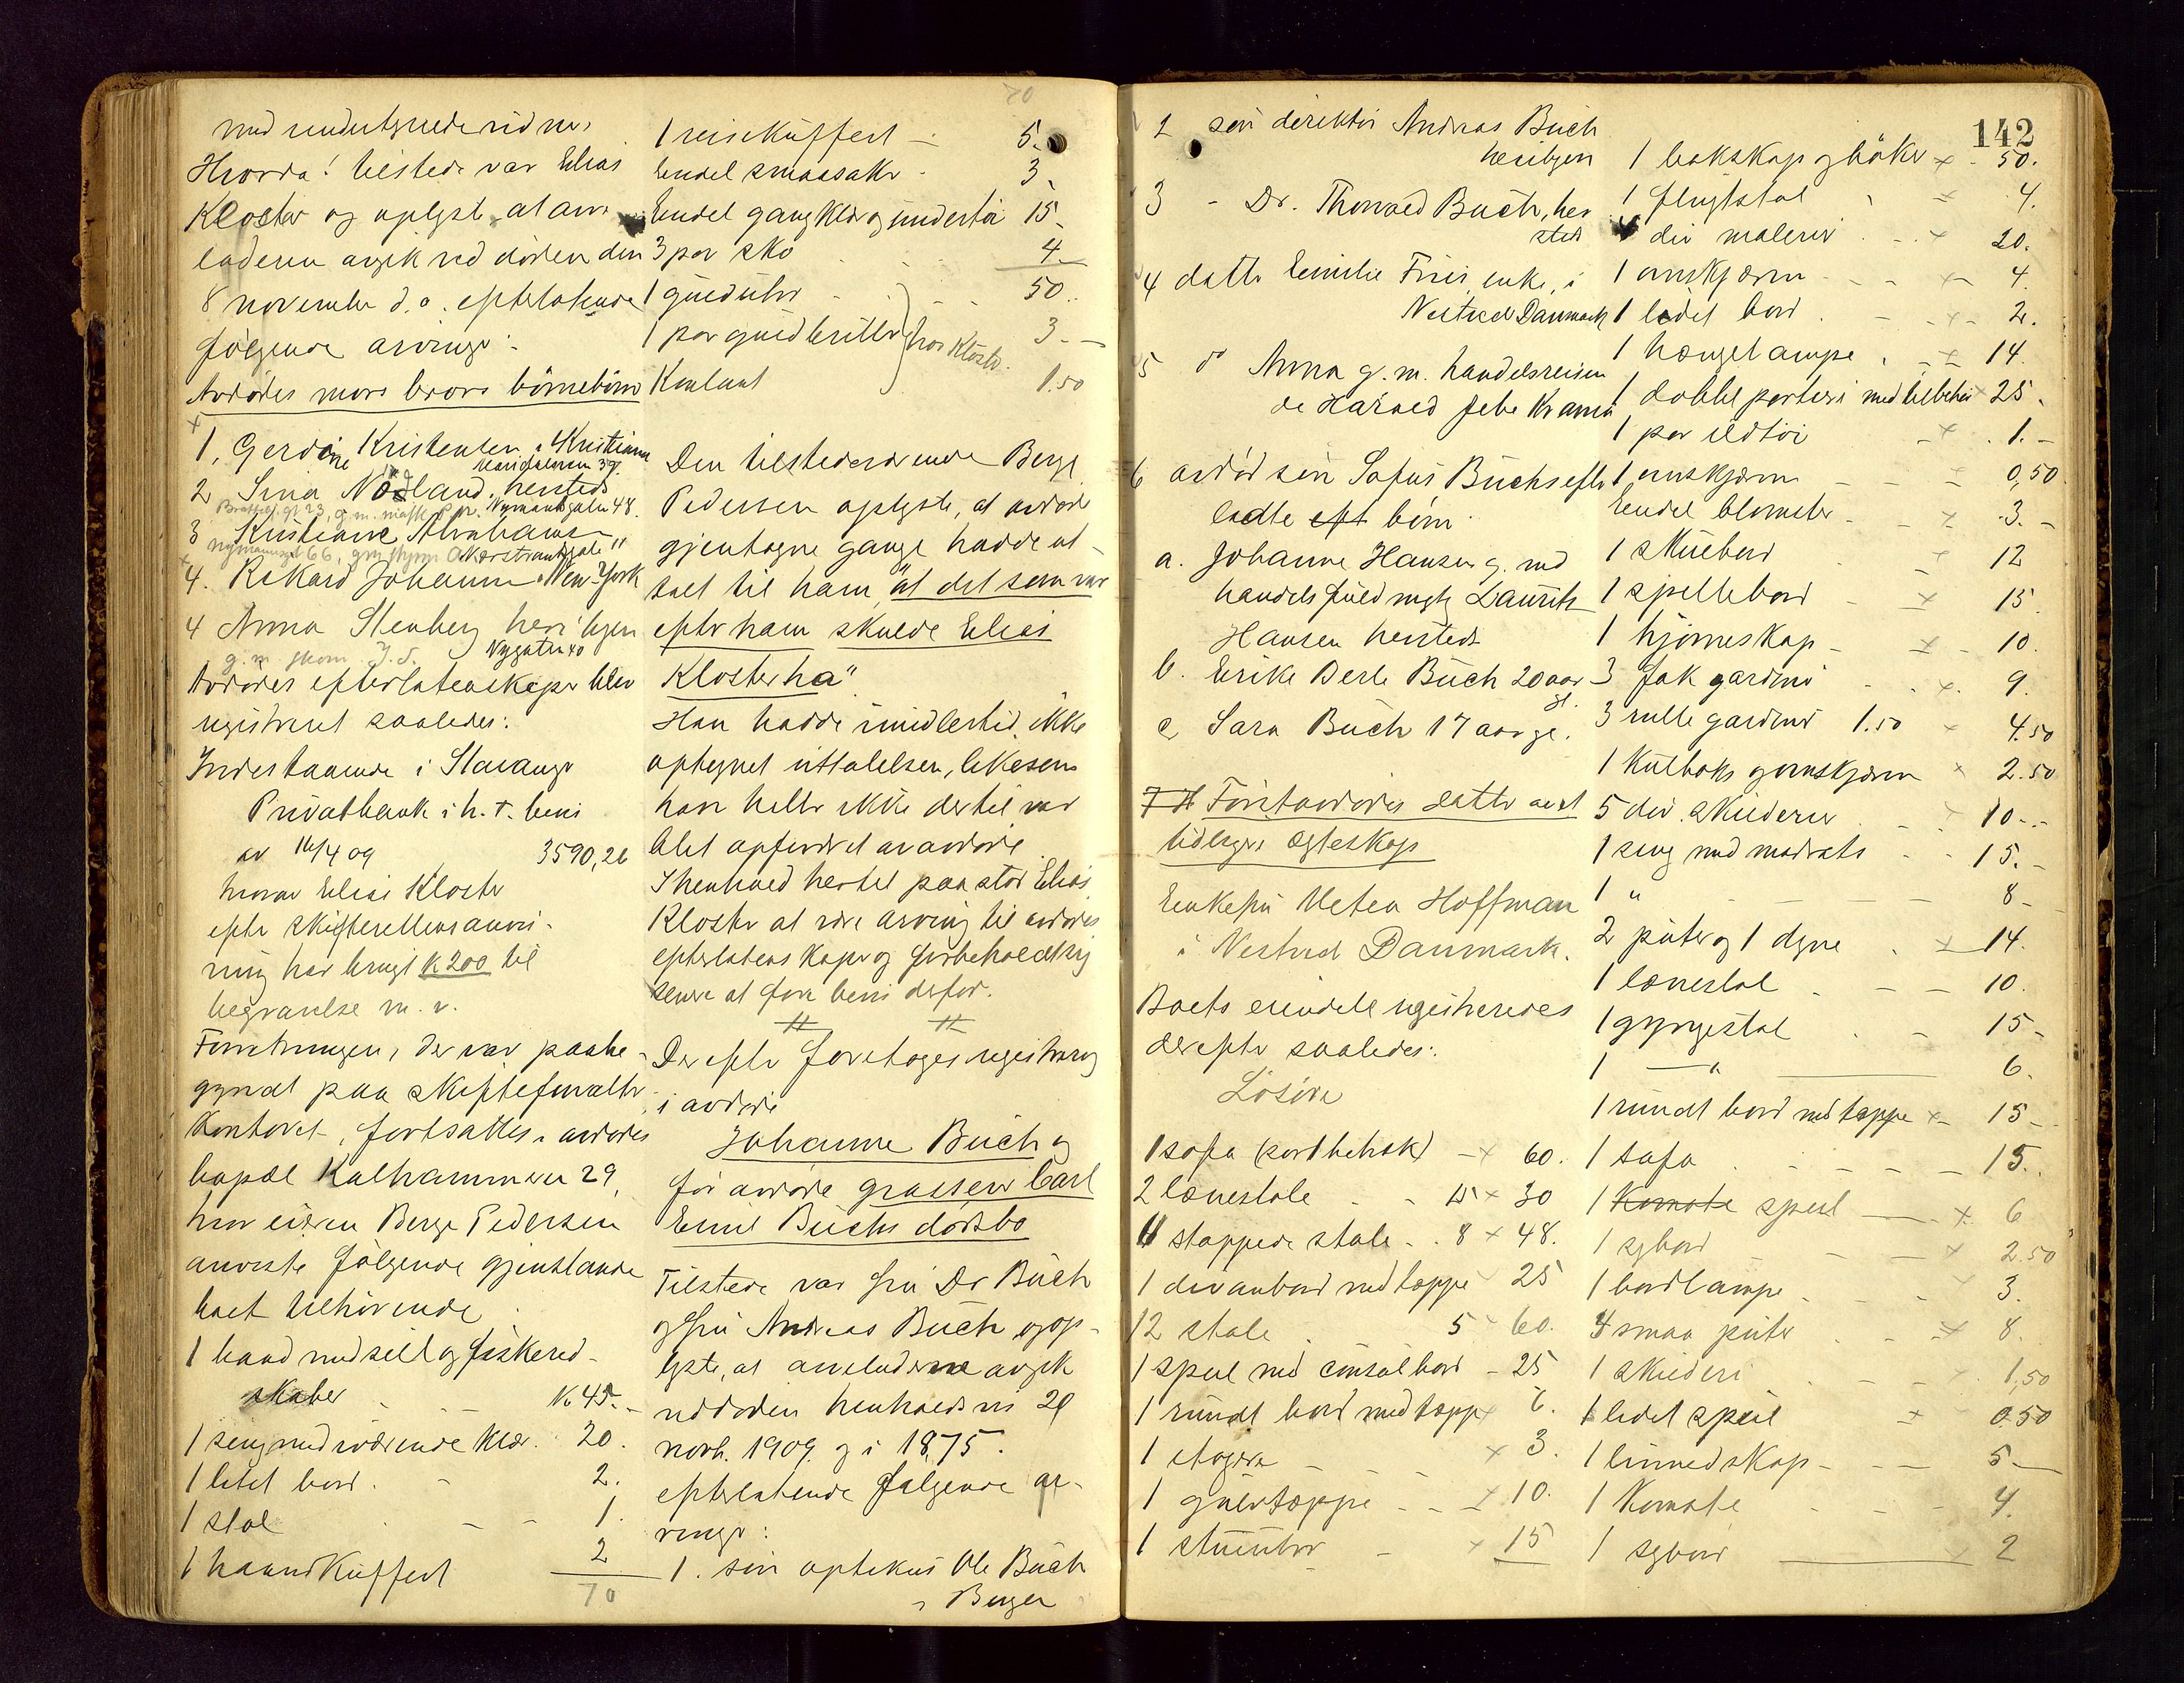 med undertegnede vidner
Hvorda! tilstede var Elias
Kloster og oplyste at arve
laderen avgik ved døden den
8 november d.a. efterlatende
følgende arvinger:
Avdødes mors brors børnebørn
1, Gerdine Kristensen i Kristiania
2 Sina Nødland, hersteds
Nymansgaten 48.
3 Kristiane Abrahamsen
4. Rikard Johannesen New York
4 Anna Stenberg heri byen
g. m. skom. J. S. Nygaten 40
Avdødes efterlatenskaper blev
registreret saaledes:
Indestaaende i Stavanger
Privatbank i h. t. bevis
av 16/4 09 3590,26
hvorav Elias Kloster
efter skifterettens anvis-
ning har brugt k 200 til
begravelse m. v.
Forretningen, der var paabe-
gyndt paa skifteforvalter
kontoret, fortsattes i avdødes
bopæl Kalhammeren 29,
hvor eieren Berge Pedersen
anviste følgende gjenstande
boet tilhørende
1 baad med seil og fiskered-
skaber k 45.-
1 seng med iværende klær. 20.
1 litet bord. - 2.
1 stol - - 1.
1 haandkuffert 2
70
70
1 reisekuffert - 5.
Endel smaasaker - 3
Endel gangklær og undertøi 15.
3 par sko 4.
1 guldur 50.
1 par guldbriller 3.-
hos Kloster.
Kontant 1.50
Den tilstedeværende Berge
Pedersen oplyste, at avdøde
gjentagne gange hadde ut-
talt til ham "at det som var
efter ham skulde Elias
Kloster ha".
Han hadde imidlertid ikke
optegnet uttalelsen, likesom
han heller ikke dertil var
blet opfordret av avdøde.
I henhold hertil paastod Elias
Kloster at være arving til avdødes
efterlatenskaper og forbeholdt sig
senere at føre bevis derfor.
Derefter foretoges registrering
i avdøde
Johanne Buch og
før avdøde grosserer Carl
Emil Buchs dødsbo
Tilstede var fru Dr Buch
og fru Andreas Buch og op-
lyste, at arveladerne avgik
ved døden henholdsvis 29
novb. 1909 og i 1875.
efterlatende følgende ar-
vinger:
1. søn aptekus Ole Buch
i Bergen
142
2 søn direktør Andreas Buch
heribyen
3 - Dr. Thorvald Buch, her
sted
4 datter Emilie Friis, enke, i
Nestved Danmark
5 do Anna g. m. handelsreisen
de Harald Jebe Kr.ania
6 avdød søn Sofus Buchs efter
ladte børn
a. Johanne Hansen g. med
handelsfuldmægtig Laurits
Hansen hersteds
b. Erike Derle Buch 20 aar
gl.
c, Sara Buch 17 aar gl.
7 Førstavdødes datter av et
tidligere ægteskap
Enkefru Meten Hoffman
i Nestved Danmark.
Boets eiendele registreredes
derefter saaledes:
Løsøre
1 sofa (sort betræk) - x 60.
2 lænestole - - 15 x 30
4 stoppede stole - . 8 x 48.
1 divanbord med tæppe 25
12 stole . 5 60.
1 speil med consolbord - 25
1 rundt bord med tæppe x 6.
1 etagere - x 3.
1 gulvtæppe - - x 10.
1 stueuhr - x 15
1 bokskap og bøker x 50.
1 flugtstol - x 4.
div malerier . - x 20.
1 ovnskjærm - - x 4.
1 lidet bord . - x 2.
1 hængelampe . - x 14.
1 dobbelt portiere med tilbehør x 25.
1 par ildtøi - x . 1.-
1 ovnskjærm - - - 0,50
Endel blomster - x .3.-
1 skuebord - 12
1 spillebord - x 15.
1 hjørneskap - x - 10.
3 fak gardiner - . x . 9.
3 rullegardiner 1.50 x 4.50
1 kulboks og ovnskjærm x 2.50
5 div. skilderier . - 10.-
1 seng med madrats - - 15.-
1 " - - - - 8-
2 puter og 1 dyne . x 14.
1 lænestol - - - 10.
1 gyngestol . - 15-
1 - " - 6.
1 rundt bord med tæppe x 15-
1 sofa - - - - 15.
1 Komode speil - x 6
1 sybord - - - x 2.50
1 bordlampe - - - 3.
4 smaa puter . - x 8.
1 skilderi . - - - 1,50
1 lidet speil x 0.50
1 linnedskap - - - 5.-
1 Komode - - - 4.
1 sybord x 2